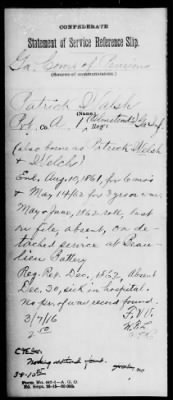 CONFEDERATE
Statement of Service Reference Slip.
Ga. Comr of Pensions
(Source of communication.)
Patrick Walsh
(Name.)
Pvt, Co. A, 1 (Olmstead's) Ga. Inf.
Regt.
(also borne as Patrick Welsh
& Welch)
Enl. Aug. 10, 1861, for 6 mos
& May 14/62 for 3 yrs or war
May & June, 1862 roll, last
on file, absent, on de-
tached service at
Battery
Reg. Rpt. Dec. 1862, Absent
Dec. 30, sick in hospital.
No pr. of war record found.
3/7/16
Nothing additional found.
Form No.